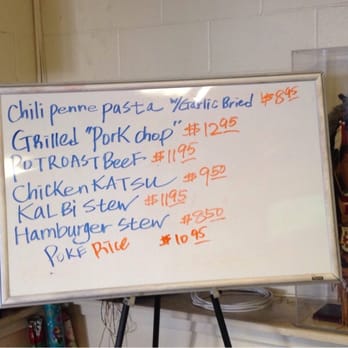 Chili penne pasta w/Garlic Bried $8.95
Grilled "Pork chop" $12.95
POTROAST BeeF $11.95
Chicken KATSU $9.50
KALBi Stew $11.95
Hamburger Stew $8.50
POKE Rice $10.95